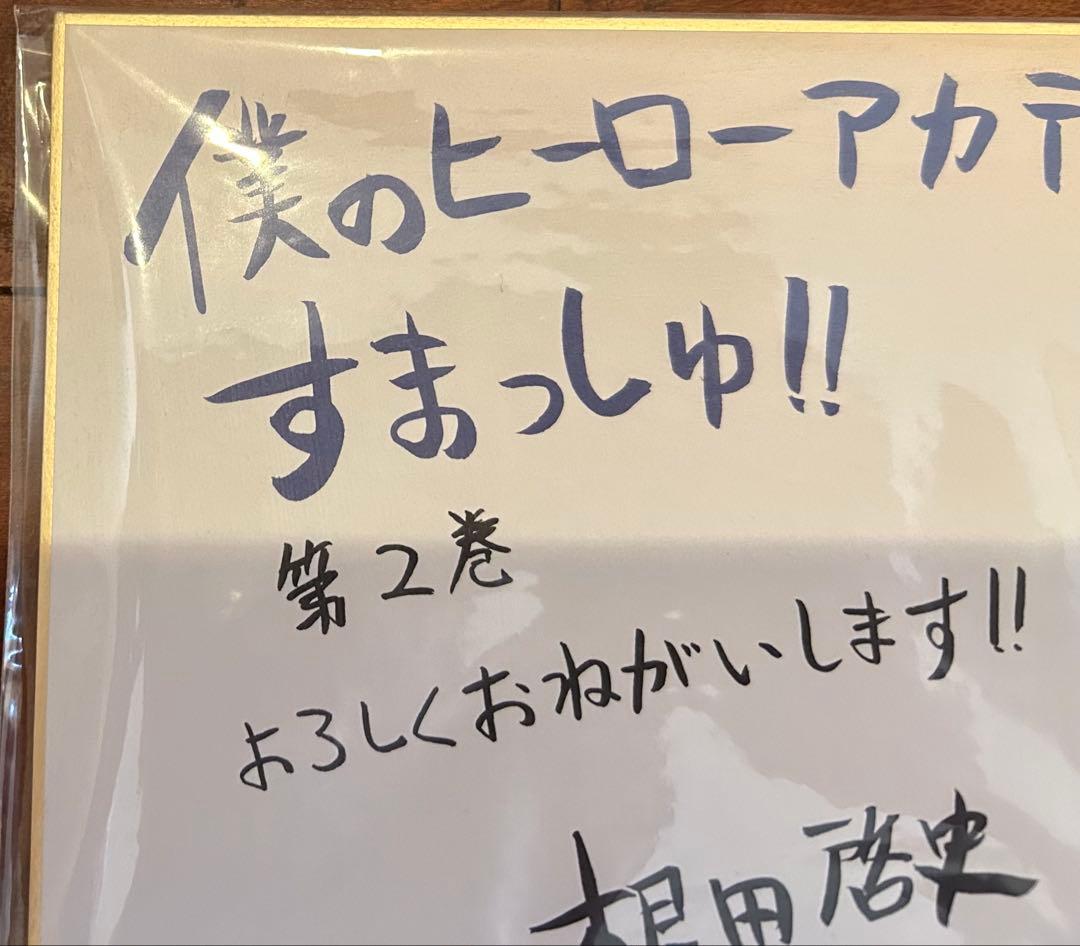 僕のヒーローアカデ
すまっしゅ!!
第2巻
よろしくおねがいします!!
根田啓史